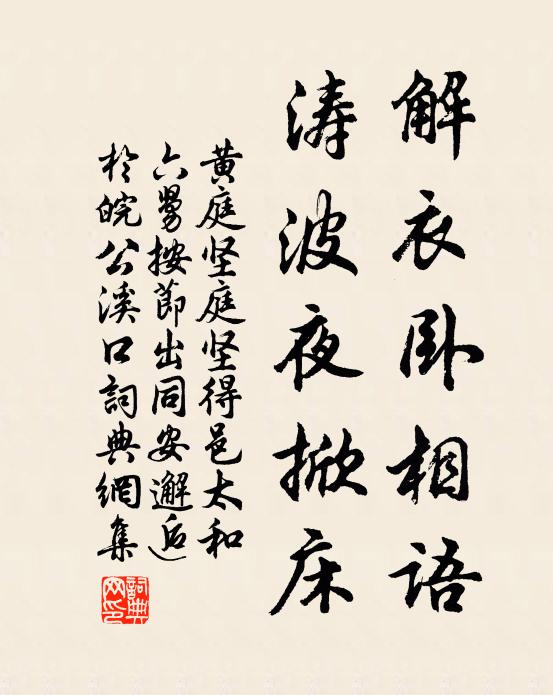 解衣卧相语
涛波夜掀床
黄庭坚庭坚得邑太和
六舅按節出同安邂逅
於皖公溪口詞典網集
詞典網印